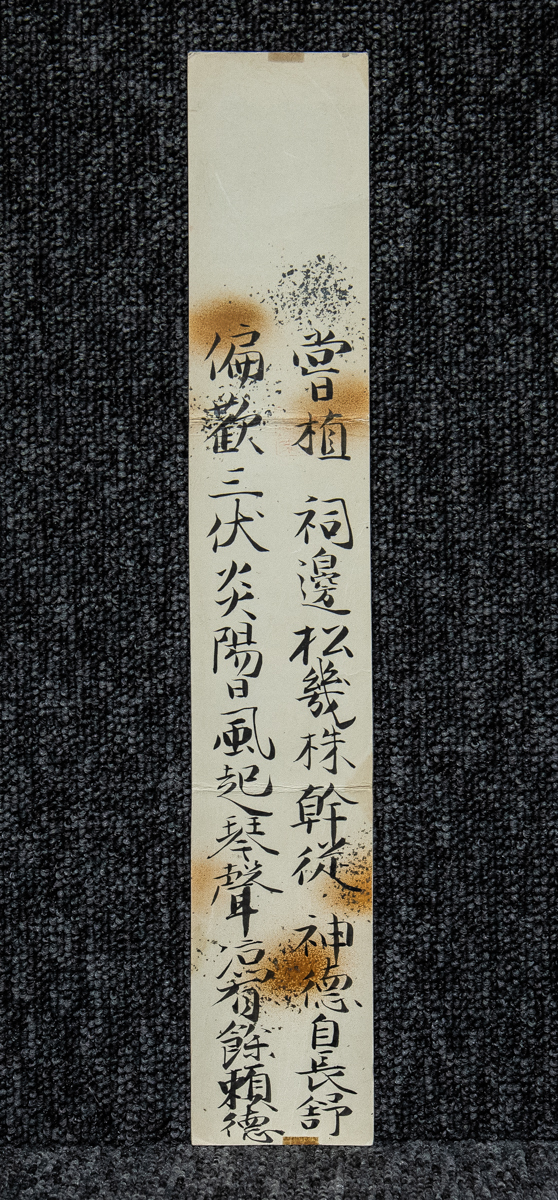 嘗植 祠邊松幾株幹從 神德自長舒
偏歡三伏炎陽日風起琴聲涼有餘 賴德